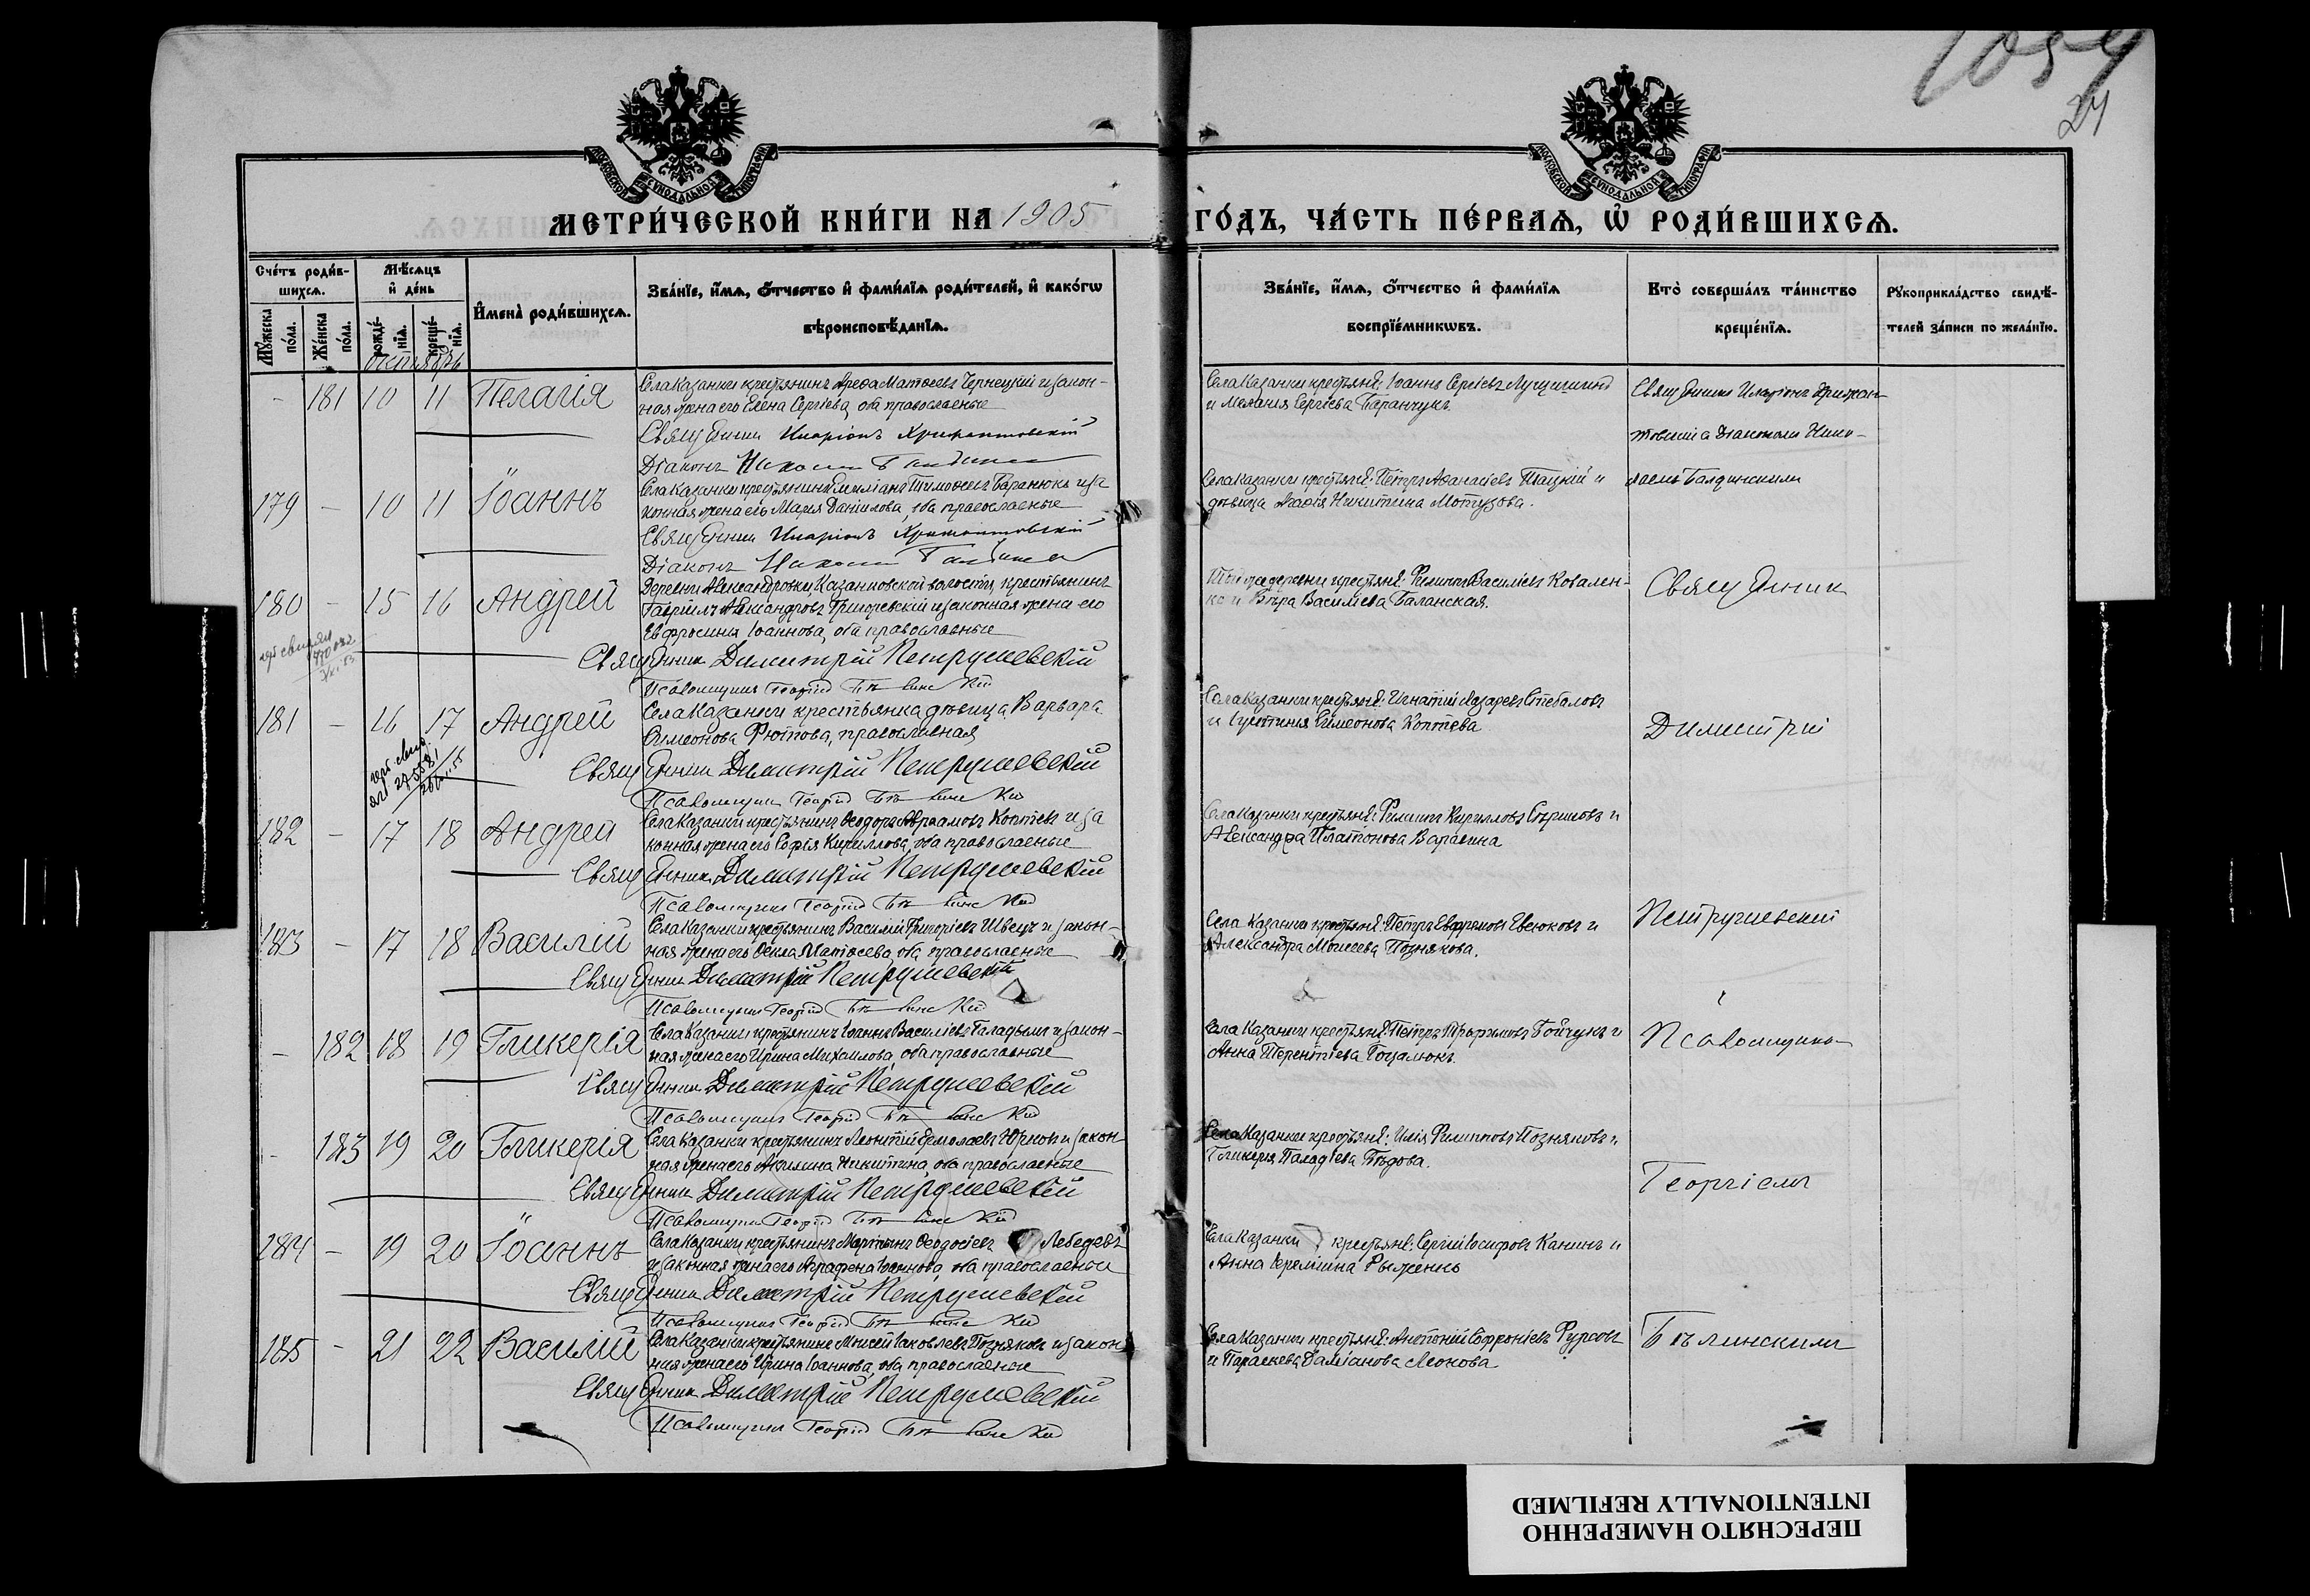 1054
24
МОСКОВСКОЙ СѴНОДАЛЬНОЙ ТИПОГРАФІИ
МОСКОВСКОЙ СѴНОДАЛЬНОЙ ТИПОГРАФІИ
МЕТРИ́ЧЕСКОЙ КНИ́ГИ НА 1905 ГО́ДЪ, ЧА́СТЬ ПЕ́РВАѦ, Ѡ҆ РОДИ́ВШИХСѦ.
Сче́тъ роди́в-
шихсѧ.
Мѣ́сѧцъ
и҆ де́нь
И҆мена̀ роди́вшихсѧ.
Зва́нїе, и҆́мѧ, ѻ҆́тчество и҆ фами́лїѧ роди́телей, и҆ како́гѡ
вѣроисповѣ́данїѧ.
Зва́нїе, и҆́мѧ, ѻ҆́тчество и҆ фами́лїѧ
воспрїе́мникѡвъ.
Кто̀ соверша́лъ та́инство
креще́нїѧ.
Рꙋкоприкла́дство свидѣ́-
телей за́писи по жела́нїю.
Мꙋ́жеска по́ла.
Же́нска по́ла.
рожде́-нїѧ.
креще́-нїѧ.
октябрь
- 181 10 11 Пелагія
Села Казанки крестьянинъ Арефа Матѳеевъ Чернецкій и закон-
ная жена его Елена Сергіева, оба православные
Священник Иларіонъ
Діаконъ
Села Казанки крестьяне: Іоаннъ Сергіевъ
и Меланія Сергіева Баранчукъ.
Священникъ Иларіонъ
товскій с Діакономъ Нико-
лаемъ
179 - 10 11 Іоаннъ
Села Казанки крестьянинъ Емиліанъ Тимоѳеевъ Баранюкъ и за
конная жена его Марія Даніилова, оба православные
Священник Иларіонъ
Діаконъ
Села Казанки крестьяне: Петръ Аѳанасіевъ и
дѣвица Агафія Никитина Мотузова.
180 - 15 16 Андрей
Деревни Александровки, Казанковской волости, крестьянинъ
Гавріилъ Александровъ Григоревскій и законная жена его
Евфросинія Іоаннова, оба православные
Священник Димитрій Петрушевскій
Псаломщикъ Георгій Бѣлинскій
Той же деревни крестьяне: Филиппъ Василіевъ Ковален-
ко и Вѣра Василіева Баланская.
Священник
181 - 16 17 Андрей
Села Казанки крестьянка дѣвица Варвара
Симеонова Фютова, православная
Священник Димитрій Петрушевскій
Псаломщикъ Георгій Бѣлинскій
Села Казанки крестьяне: Игнатій Лазаревъ Стебаловъ
и Іустинія Симеонова Коптева
Димитрій
182 - 17 18 Андрей
Села Казанки крестьянинъ Ѳеодоръ Авраамовъ Коптевъ и за
конная жена его Софія Кириллова, оба православные
Священник Димитрій Петрушевскій
Псаломщикъ Георгій Бѣлинскій
Села Казанки крестьяне: Филиппъ Кирилловъ и
Александра Платонова Варавина
183 - 17 18 Василій
Села Казанки крестьянинъ Василій Григоріевъ Швецъ и закон-
ная жена его Ѳекла Матѳеева, оба православные
Священник Димитрій Петрушевскій
Псаломщикъ Георгій Бѣлинскій
Села Казанки крестьяне: Петръ Евфремовъ Евсюковъ и
Александра Моисеева Познякова.
Петрушевскій
- 182 18 19 Гликерія
Села Казанки крестьянинъ Іоаннъ Василіевъ и закон-
ная жена его Ирина Михаилова, оба православные
Священник Димитрій Петрушевскій
Псаломщикъ Георгій Бѣлинскій
Села Казанки крестьяне: Петръ Трофимовъ Бойчукъ и
Анна Терентіева
Псаломщикомъ
- 183 19 20 Гликерія
Села Казанки крестьянинъ Леонтій Ермолаевъ Юрковъ и закон-
ная жена его Акилина Никитина, оба православные
Священник Димитрій Петрушевскій
Псаломщикъ Георгій Бѣлинскій
Села Казанки крестьяне: Илія Филипповъ Позняковъ и
Гликерія Паладіева Бѣдова.
Георгіемъ
184 - 19 20 Іоаннъ
Села Казанки крестьянинъ Мартинъ Ѳеодосіевъ Лебедевъ
и законная жена его Аграфена Іоаннова, оба православные
Священник Димитрій Петрушевскій
Псаломщикъ Георгій Бѣлинскій
Села Казанки крестьяне: Сергій Іосифовъ Канинъ и
Анна Іереміина
185 - 21 22 Василій
Села Казанки крестьянинъ Моисей Іаковлевъ Позняковъ и закон
ная жена его Ирина Іоаннова, оба православные
Священник Димитрій Петрушевскій
Псаломщикъ Георгій Бѣлинскій
Села Казанки крестьяне: Антоній Софроніевъ Фурсовъ
и Параскева Даміанова Леонова
Бѣлинскимъ
ПЕРЕСНЯТО НАМЕРЕННО
INTENTIONALLY REFILMED